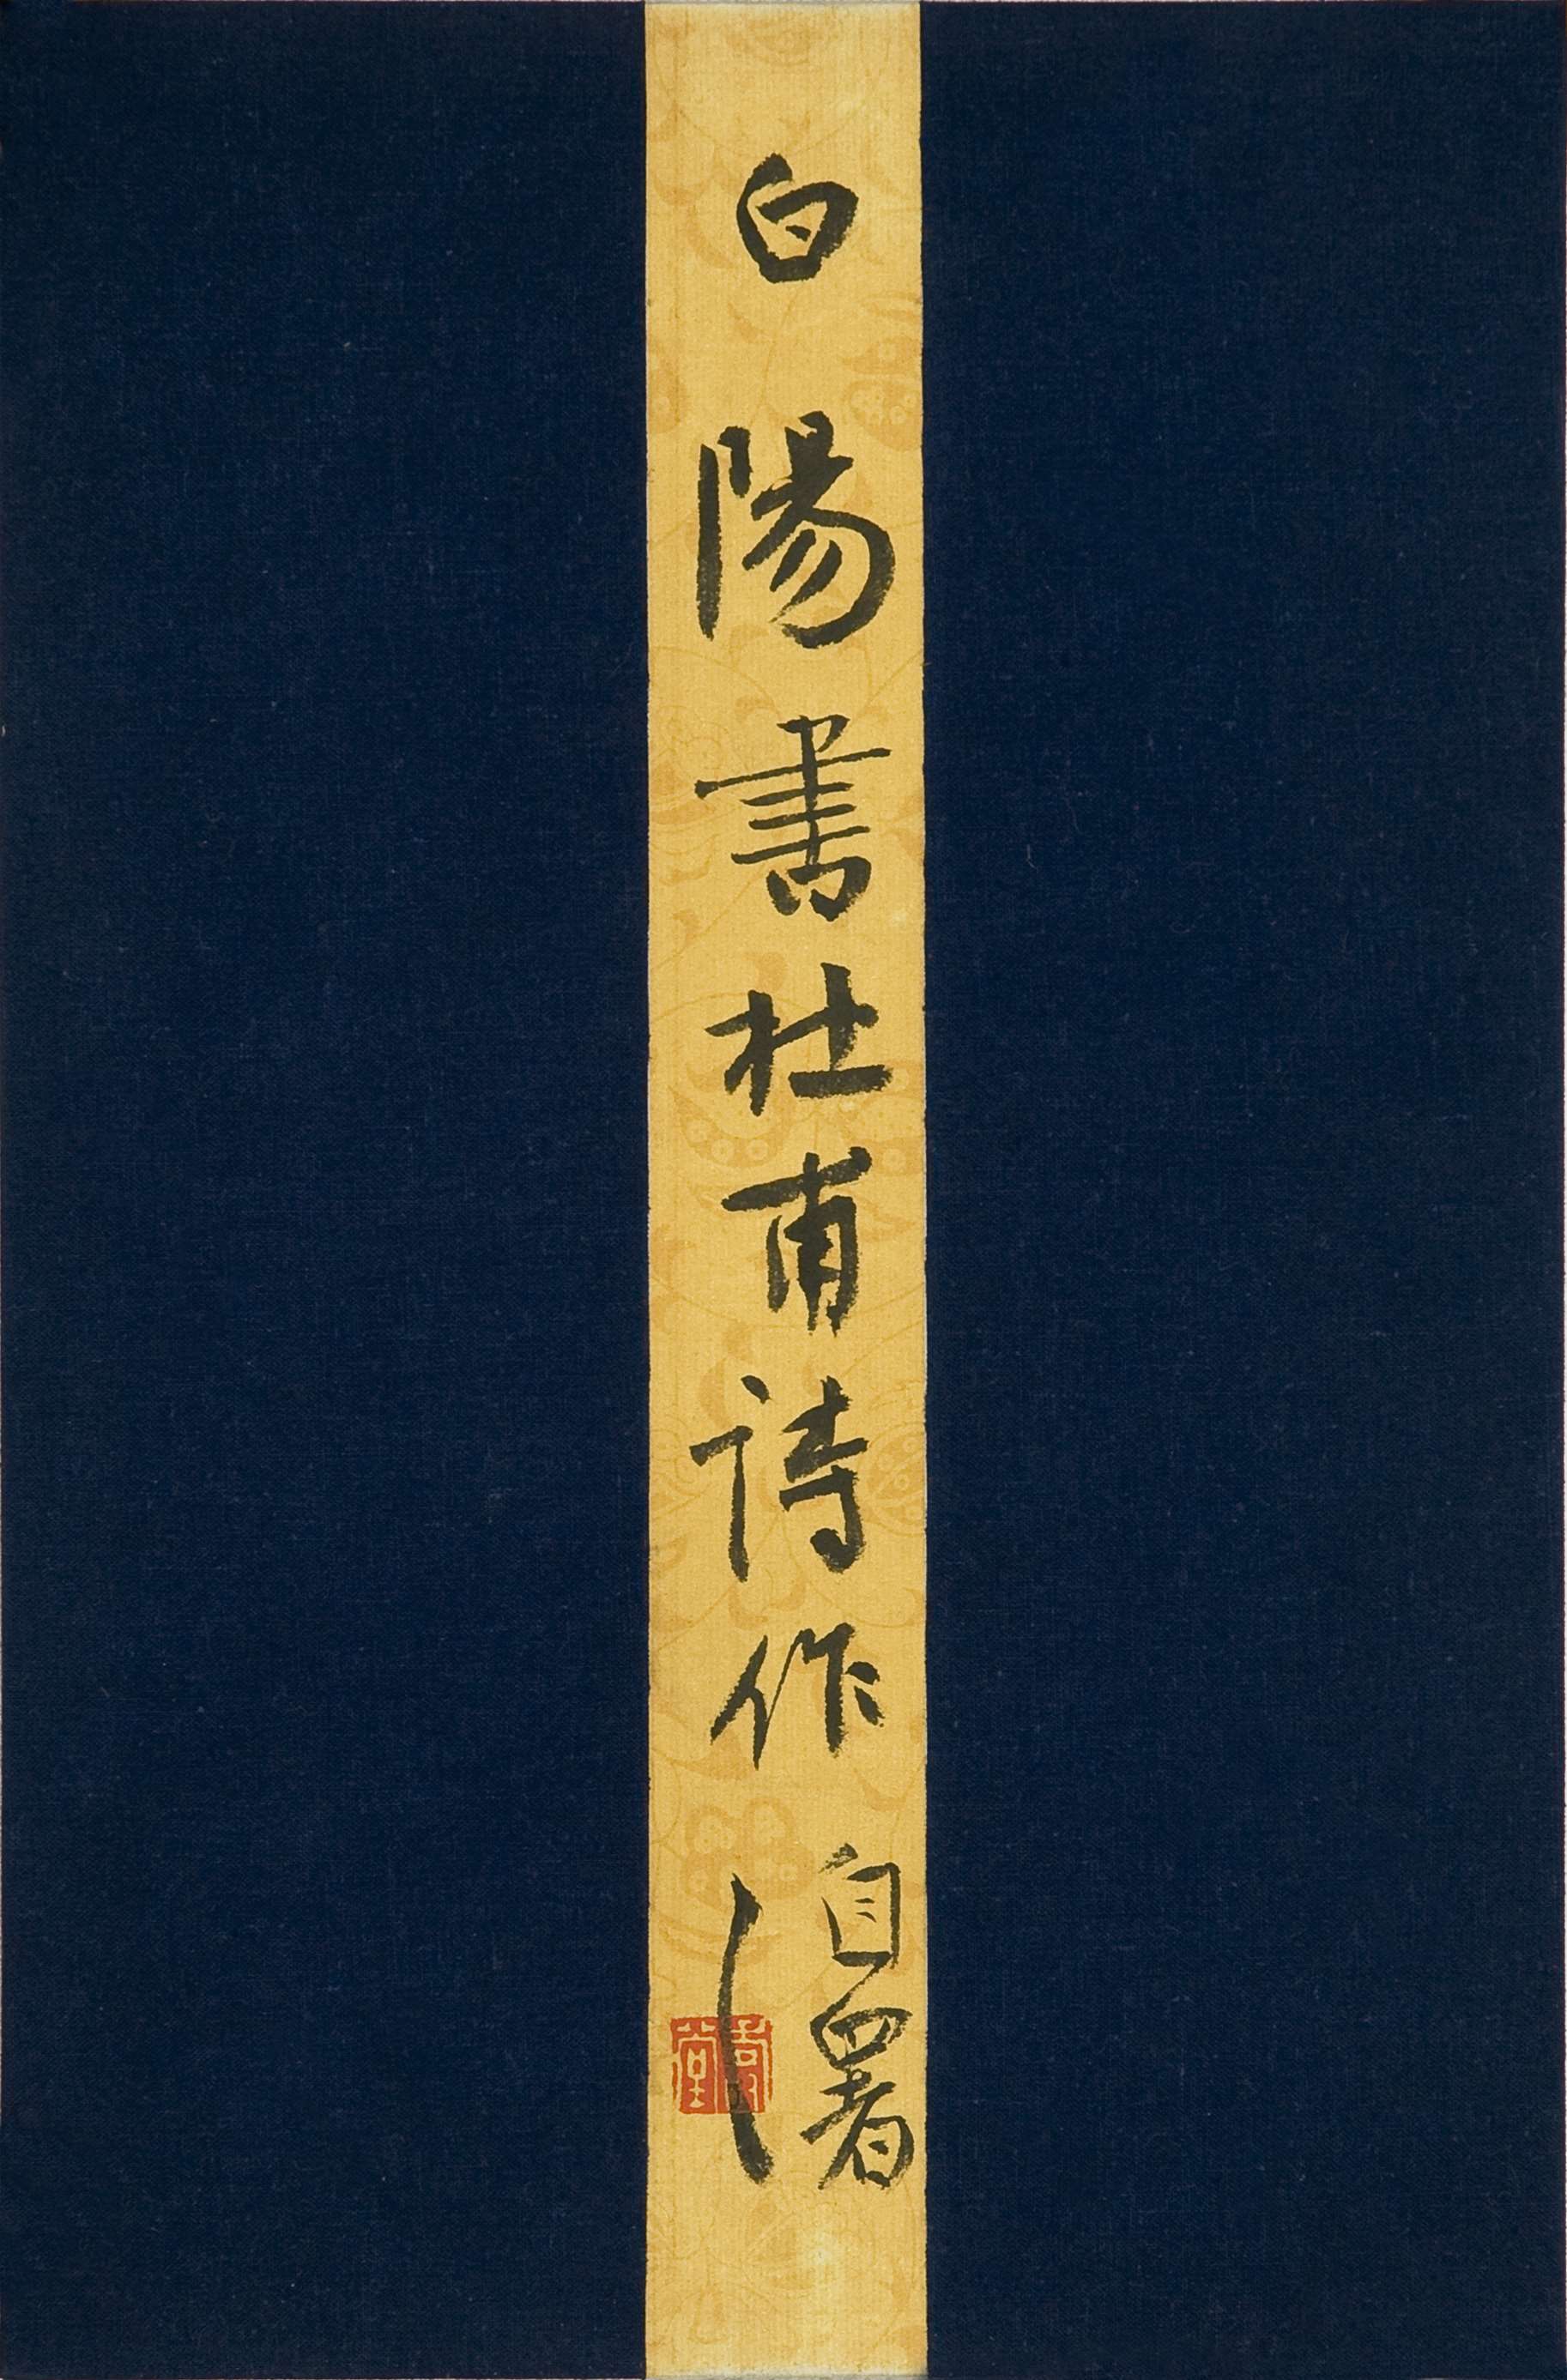 白陽書杜甫詩作
自署